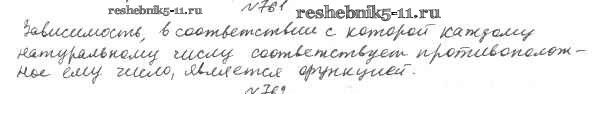 №761
reshebnik5-11.ru
reshebnik5-11.ru
Зависимость, в соответствии с которой каждому
натуральному числу соответствует противополож-
ное ему число, является функцией.
№769